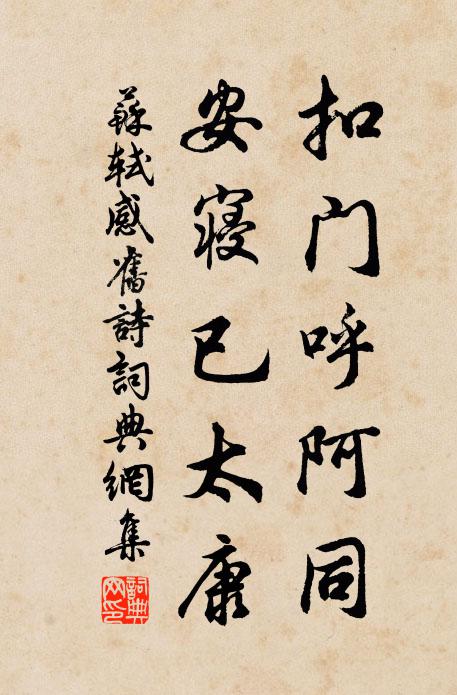 扣門呼阿同
安寢已太康
蘇軾感舊詩詞典網集
詞典网印